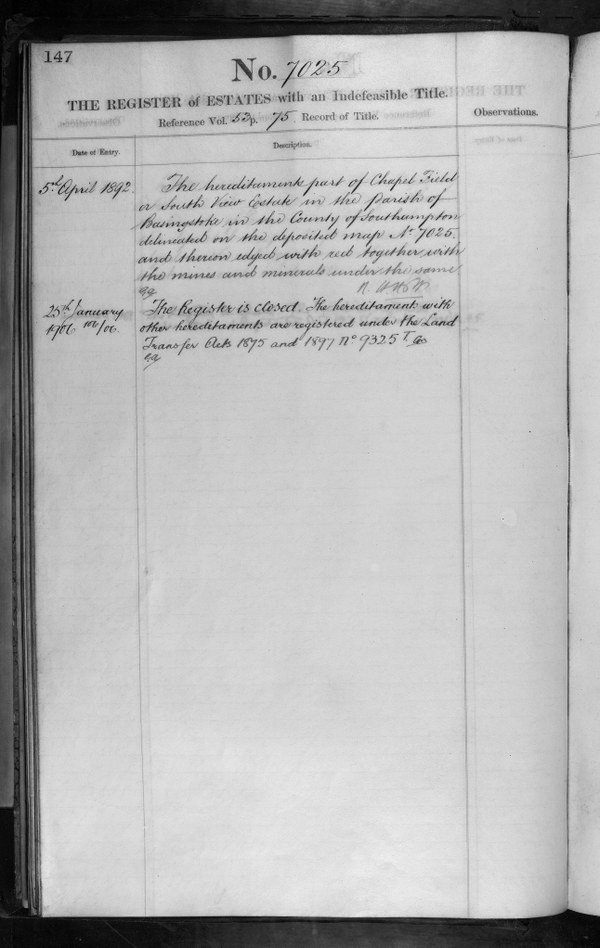 147
No. 7025
THE REGISTER of ESTATES with an Indefeasible Title.
Reference Vol. 53 p. 75 Record of Title.
Observations.
Date of Entry.
Description.
5th April 1892
The hereditaments part of Chapel Field
or South View Estate in the parish of
Basingstoke in the County of Southampton
delineated on the deposited map No. 7025
and thereon edged with red together with
the mines and minerals under the same
25th January
1906 102/06
The Register is closed. The hereditaments with
other hereditaments are registered under the Land
Transfer Acts 1875 and 1897 No 9325